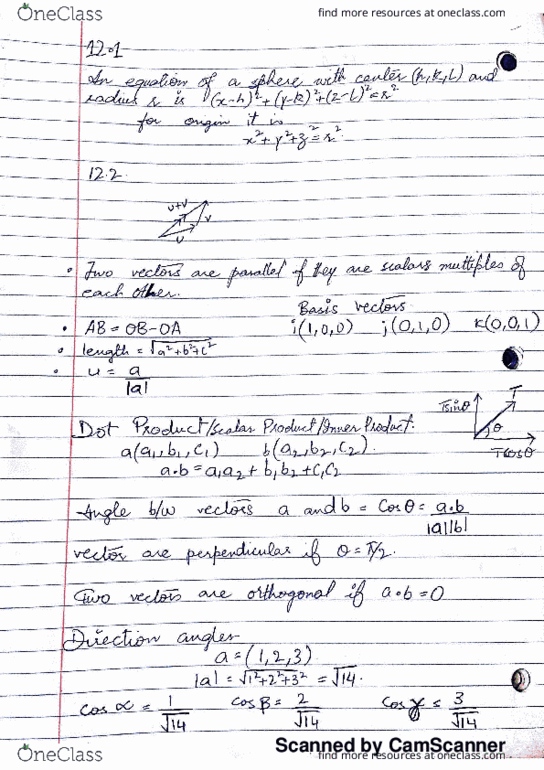 OneClass
find more resources at oneclass.com
12.1
An equation of a sphere with center (h,k,l) and
radius r is (x-h)²+(y-k)²+(z-l)²=r²
for origin it is
x²+y²+z²=r²
12.2
u+v
v
u
• Two vectors are parallel if they are scalars multiples of
each other.
Basis vectors
• AB = OB-OA i(1,0,0) j(0,1,0) k(0,0,1)
• length = √a²+b²+c²
• u = a
|a|
T
Tsinθ
θ
Tcosθ
Dot Product/Scalar Product/Inner Product.
a(a₁,b₁,c₁) b(a₂,b₂,c₂).
a•b = a₁a₂ + b₁b₂ + c₁c₂
Angle b/w vectors a and b = Cosθ = a•b
|a||b|
vector are perpendicular if θ = π/2.
Two vectors are orthogonal if a•b = 0
Direction angles
a = (1,2,3)
|a| = √1²+2²+3² = √14.
cos α = 1/√14 cos β = 2/√14 cos γ = 3/√14
Scanned by CamScanner
OneClass
find more resources at oneclass.com